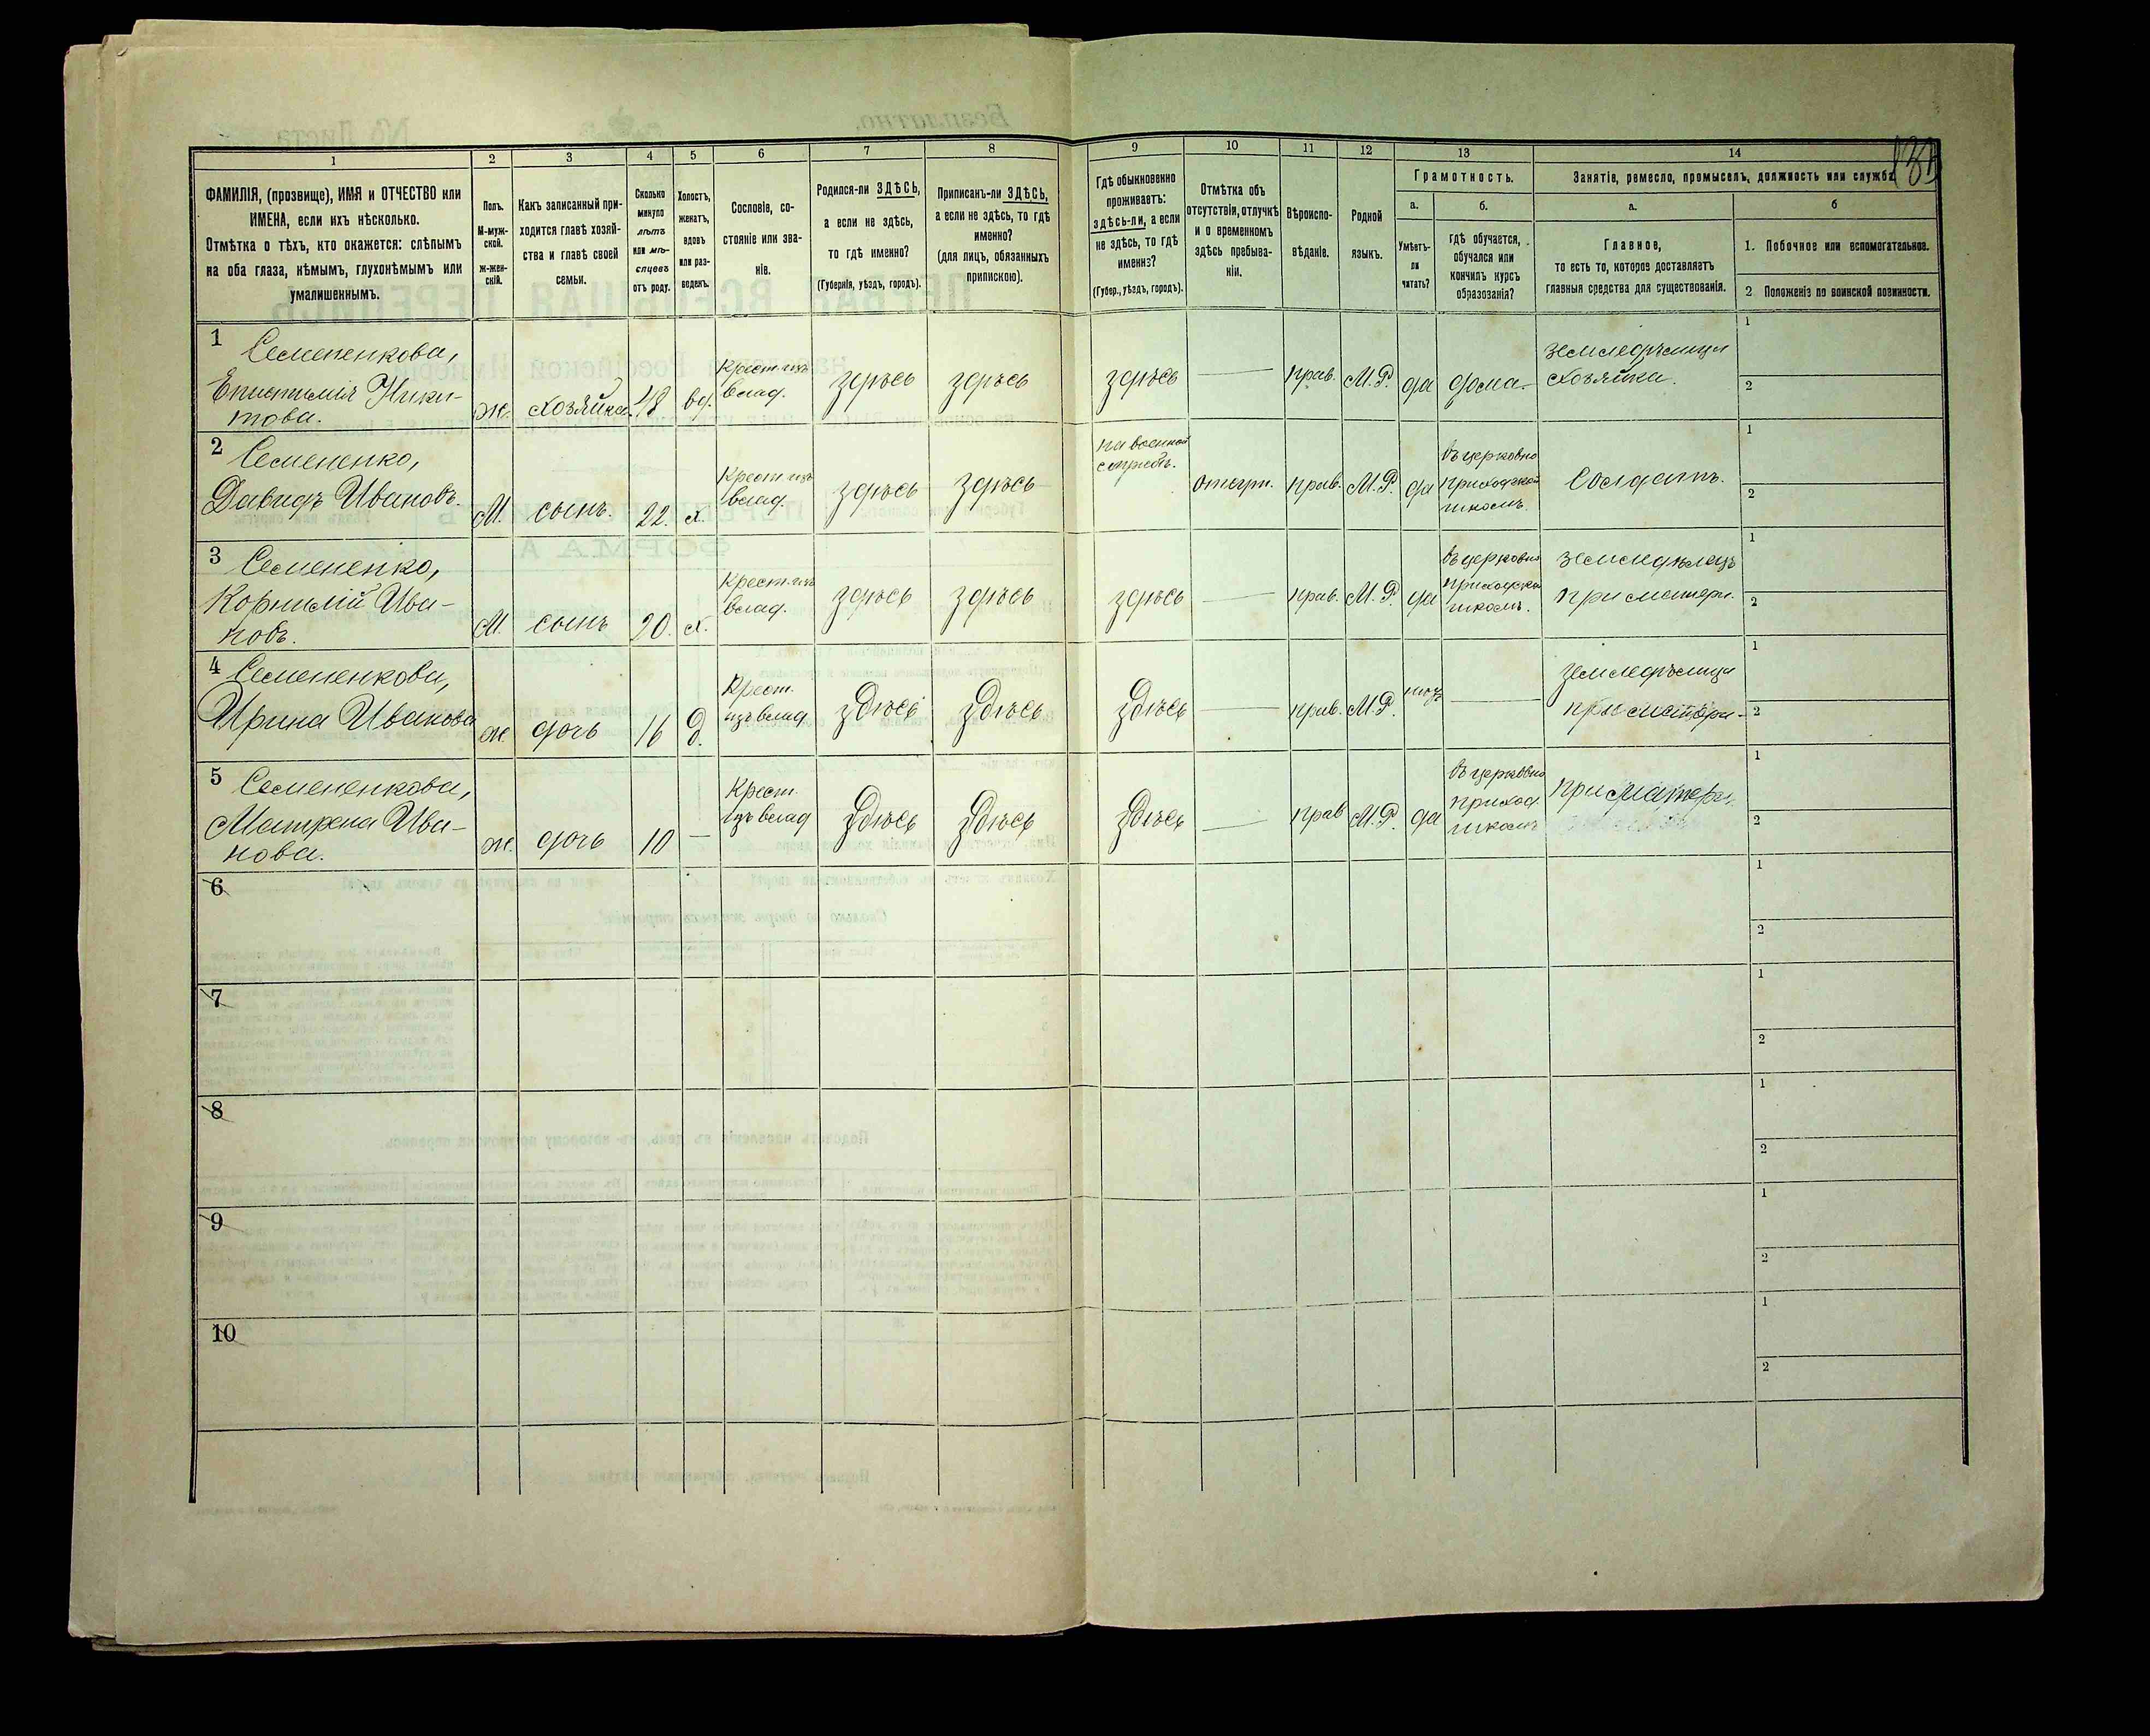 1
2
3
4
5
6
7
8
9
10
11
12
13
14
ФАМИЛІЯ, (прозвище), ИМЯ и ОТЧЕСТВО или
ИМЕНА, если ихъ нѣсколько.
Отмѣтка о тѣхъ, кто окажется: слѣпымъ
на оба глаза, нѣмымъ, глухонѣмымъ или
умалишеннымъ.
Полъ.
М-муж-
ской.
Ж-жен-
скій.
Какъ записанный при-
ходится главѣ хозяй-
ства и главѣ своей
семьи.
Сколько
минуло
лѣтъ
или мѣ-
сяцевъ
отъ роду.
Холостъ,
женатъ,
вдовъ
или раз-
веденъ.
Сословіе, со-
стояніе или зва-
ніе.
Родился-ли ЗДѢСЬ,
а если не здѣсь,
то гдѣ именно?
(Губернія, уѣздъ, городъ).
Приписанъ-ли ЗДѢСЬ,
а если не здѣсь, то гдѣ
именно?
(для лицъ, обязанныхъ
припискою).
Гдѣ обыкновенно
проживаетъ:
здѣсь-ли, а если
не здѣсь, то гдѣ
именно?
(Губер., уѣздъ, городъ).
Отмѣтка объ
отсутствіи, отлучкѣ
и о временномъ
здѣсь пребыва-
ніи.
Вѣроиспо-
вѣданіе.
Родной
языкъ.
Грамотность.
а.
Умѣетъ-
ли
читать?
б.
гдѣ обучается,
обучался или
кончилъ курсъ
образованія?
Занятіе, ремесло, промыселъ, должность или служба
а.
Главное,
то есть то, которое доставляетъ
главныя средства для существованія.
б
1. Побочное или вспомогательное.
2 Положеніе по воинской повинности.
1 Семененкова,
Епистимія Ники-
това.
ж. хозяйка 48 вд.
Крест. изъ
влад.
здѣсь здѣсь здѣсь — прав. М.Р. да дома
земледѣлица
хозяйка.
1
2
2 Семененко,
Давидъ Ивановъ.
М. сынъ. 22. х.
Крест. изъ
влад.
здѣсь здѣсь
на военной
службѣ.
прав. М.Р. да
въ церковно
приходской
школѣ.
Солдатъ.
1
2
3 Семененко,
Корнилій Ива-
новъ.
М. сынъ 20. х.
Крест. изъ
влад.
здѣсь здѣсь здѣсь — прав. М.Р. да
въ церковно
приходской
школѣ.
земледѣлецъ
при матери.
1
2
4 Семененкова,
Ирина Иванова
ж. дочь 16 д.
Крест.
изъ влад
здѣсь здѣсь здѣсь — прав. М.Р. —
земледѣлица
при матери
1
2
5 Семененкова,
Матрена Ива-
нова.
ж. дочь 10 —
Крест.
изъ влад
здѣсь здѣсь здѣсь — прав М.Р. да
въ церковно
приход.
школѣ
при матери.
1
2
6
1
2
7
1
2
8
1
2
9
1
2
10
1
2